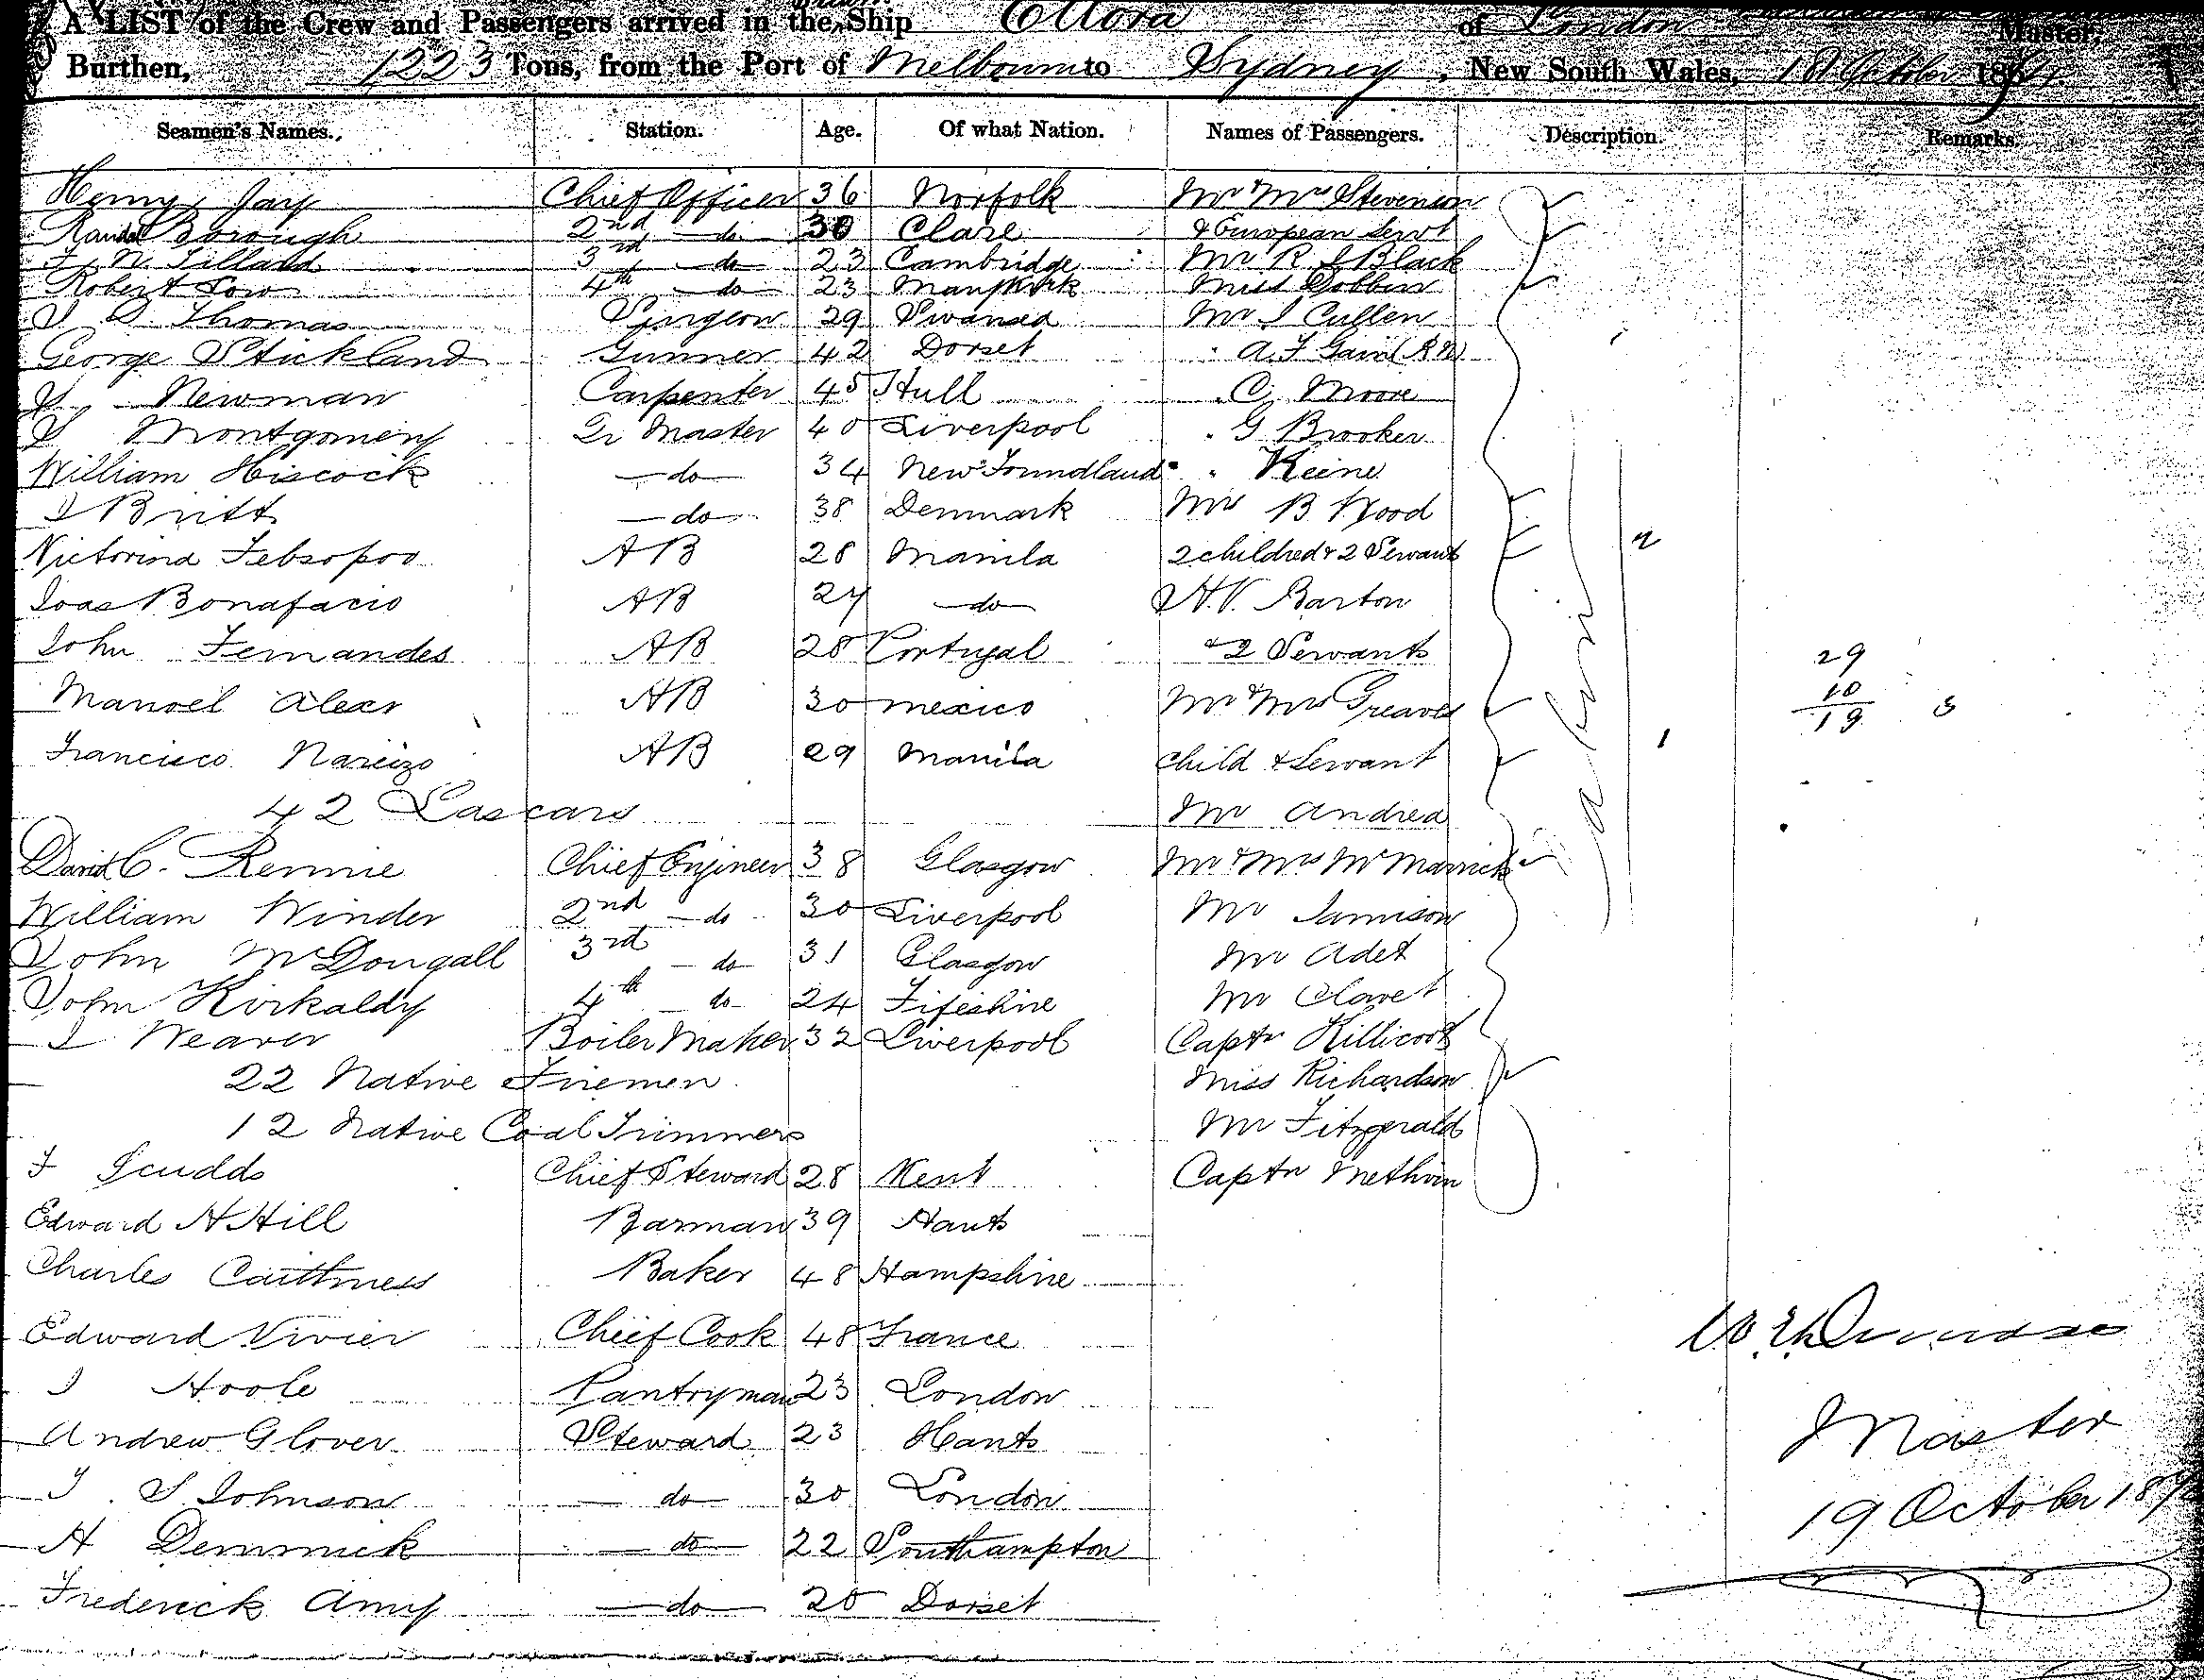 A LIST of the Crew and Passengers arrived in the Ship Ellora of London Master,
Burthen, 1223 Tons, from the Port of Melbourne to Sydney, New South Wales, 18 October 187
Seamen's Names. Station. Age. Of what Nation. Names of Passengers. Description. Remarks.
Henry Jay Chief Officer 36 Norfolk Mr & Mrs Stevenson
Borough 2nd do 30 Clare & European Servt
F N Tillard 3rd do 23 Cambridge Mr R S Black
Robert Low 4th do 23 Miss Dobbin
Thomas Surgeon 29 Swansea Mr J Cullen
George Stickland Gunner 42 Dorset " A. F. (RN)
Newman Carpenter 45 Hull " C Moore
Montgomery Qr Master 40 Liverpool " G Brooker
William Hiscock do 34 New Foundland " Keine
J Britt do 38 Denmark Mrs B Wood
Victorina AB 28 Manila 2 children & 2 Servants 2
Bonafacio AB 24 do H. V. Barton
John Fernandes AB 28 Portugal & 2 Servants 29
Manoel AB 30 Mexico Mr & Mrs Greaves 10
19 3
Francisco Narcizo AB 29 Manila child & Servant 1
42 Lascars Mr Andrea
David C. Rennie Chief Engineer 38 Glasgow Mr & Mrs
William Winder 2nd do 30 Liverpool Mr Jamison
John McDougall 3rd do 31 Glasgow Mr Adet
John Kirkaldy 4th do 24 Fifeshire Mr Clavet
J Weaver Boiler Maker 32 Liverpool Captn
22 Native Firemen Miss Richardson
12 Native Coal Trimmers Mr Fitzgerald
F Scudds Chief Steward 28 Kent Captn Methven
Edward H Hill Barman 39 Hants
Charles Caithness Baker 48 Hampshire
Edward Vivier Chief Cook 48 France
J Hoole Pantryman 23 London
Andrew Glover Steward 23 Hants
Master
J. S Johnson do 30 London
19 October 187
H Demmick do 22 Southampton
Frederick Amy do 20 Dorset